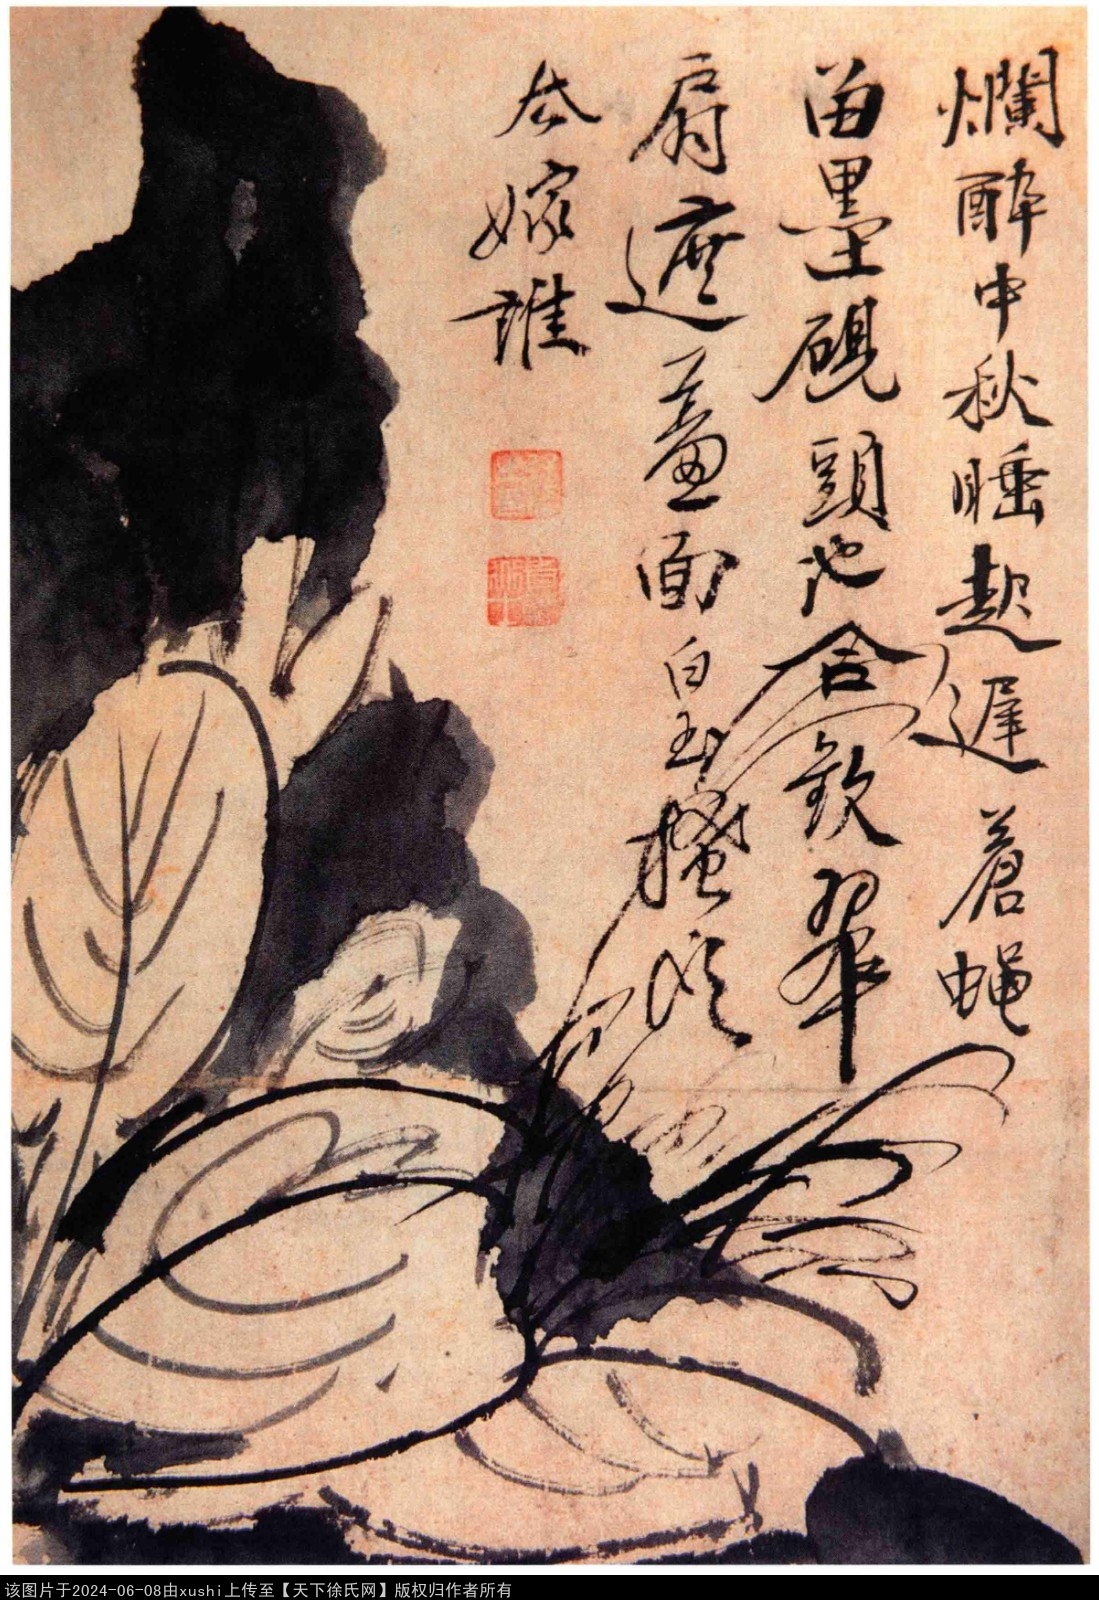 爛醉中秋睡起遲蒼蠅
留墨硯頭池合歡翠
扇遮羞面白玉搔頭
去嫁誰
该图片于2024-06-08由xushi上传至【天下徐氏网】版权归作者所有